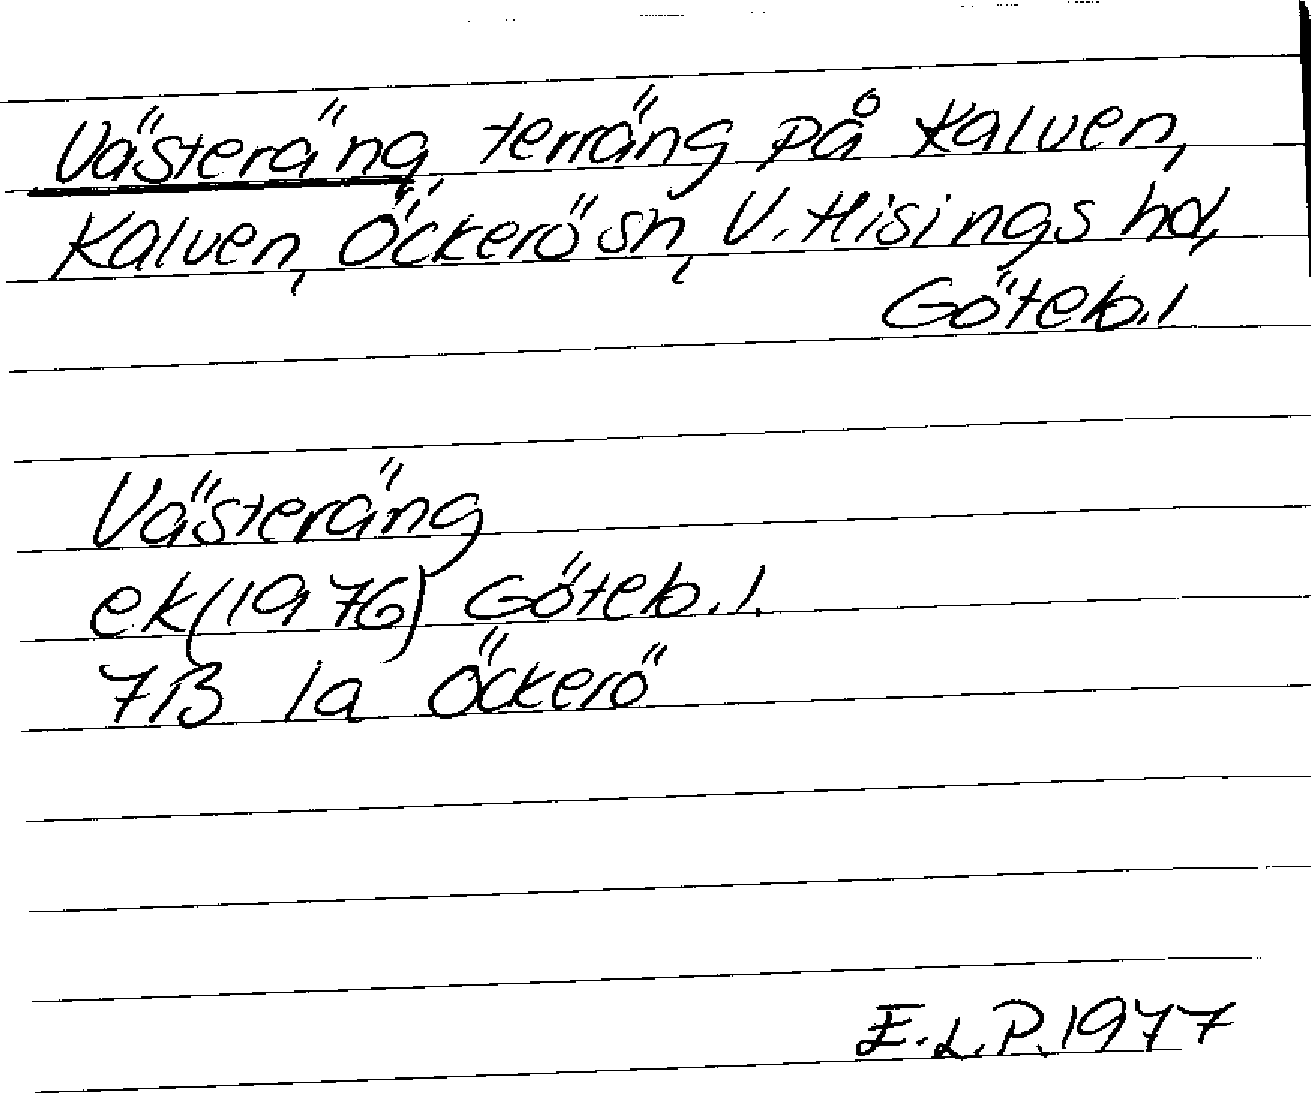 Västeräng, terräng på Kalven,
Kalven, Öckerö sn, V. Hisings hd,
Göteb. l
Västeräng
ek (1976) Göteb. l.
7B 1a Öckerö
E.L.P. 1977